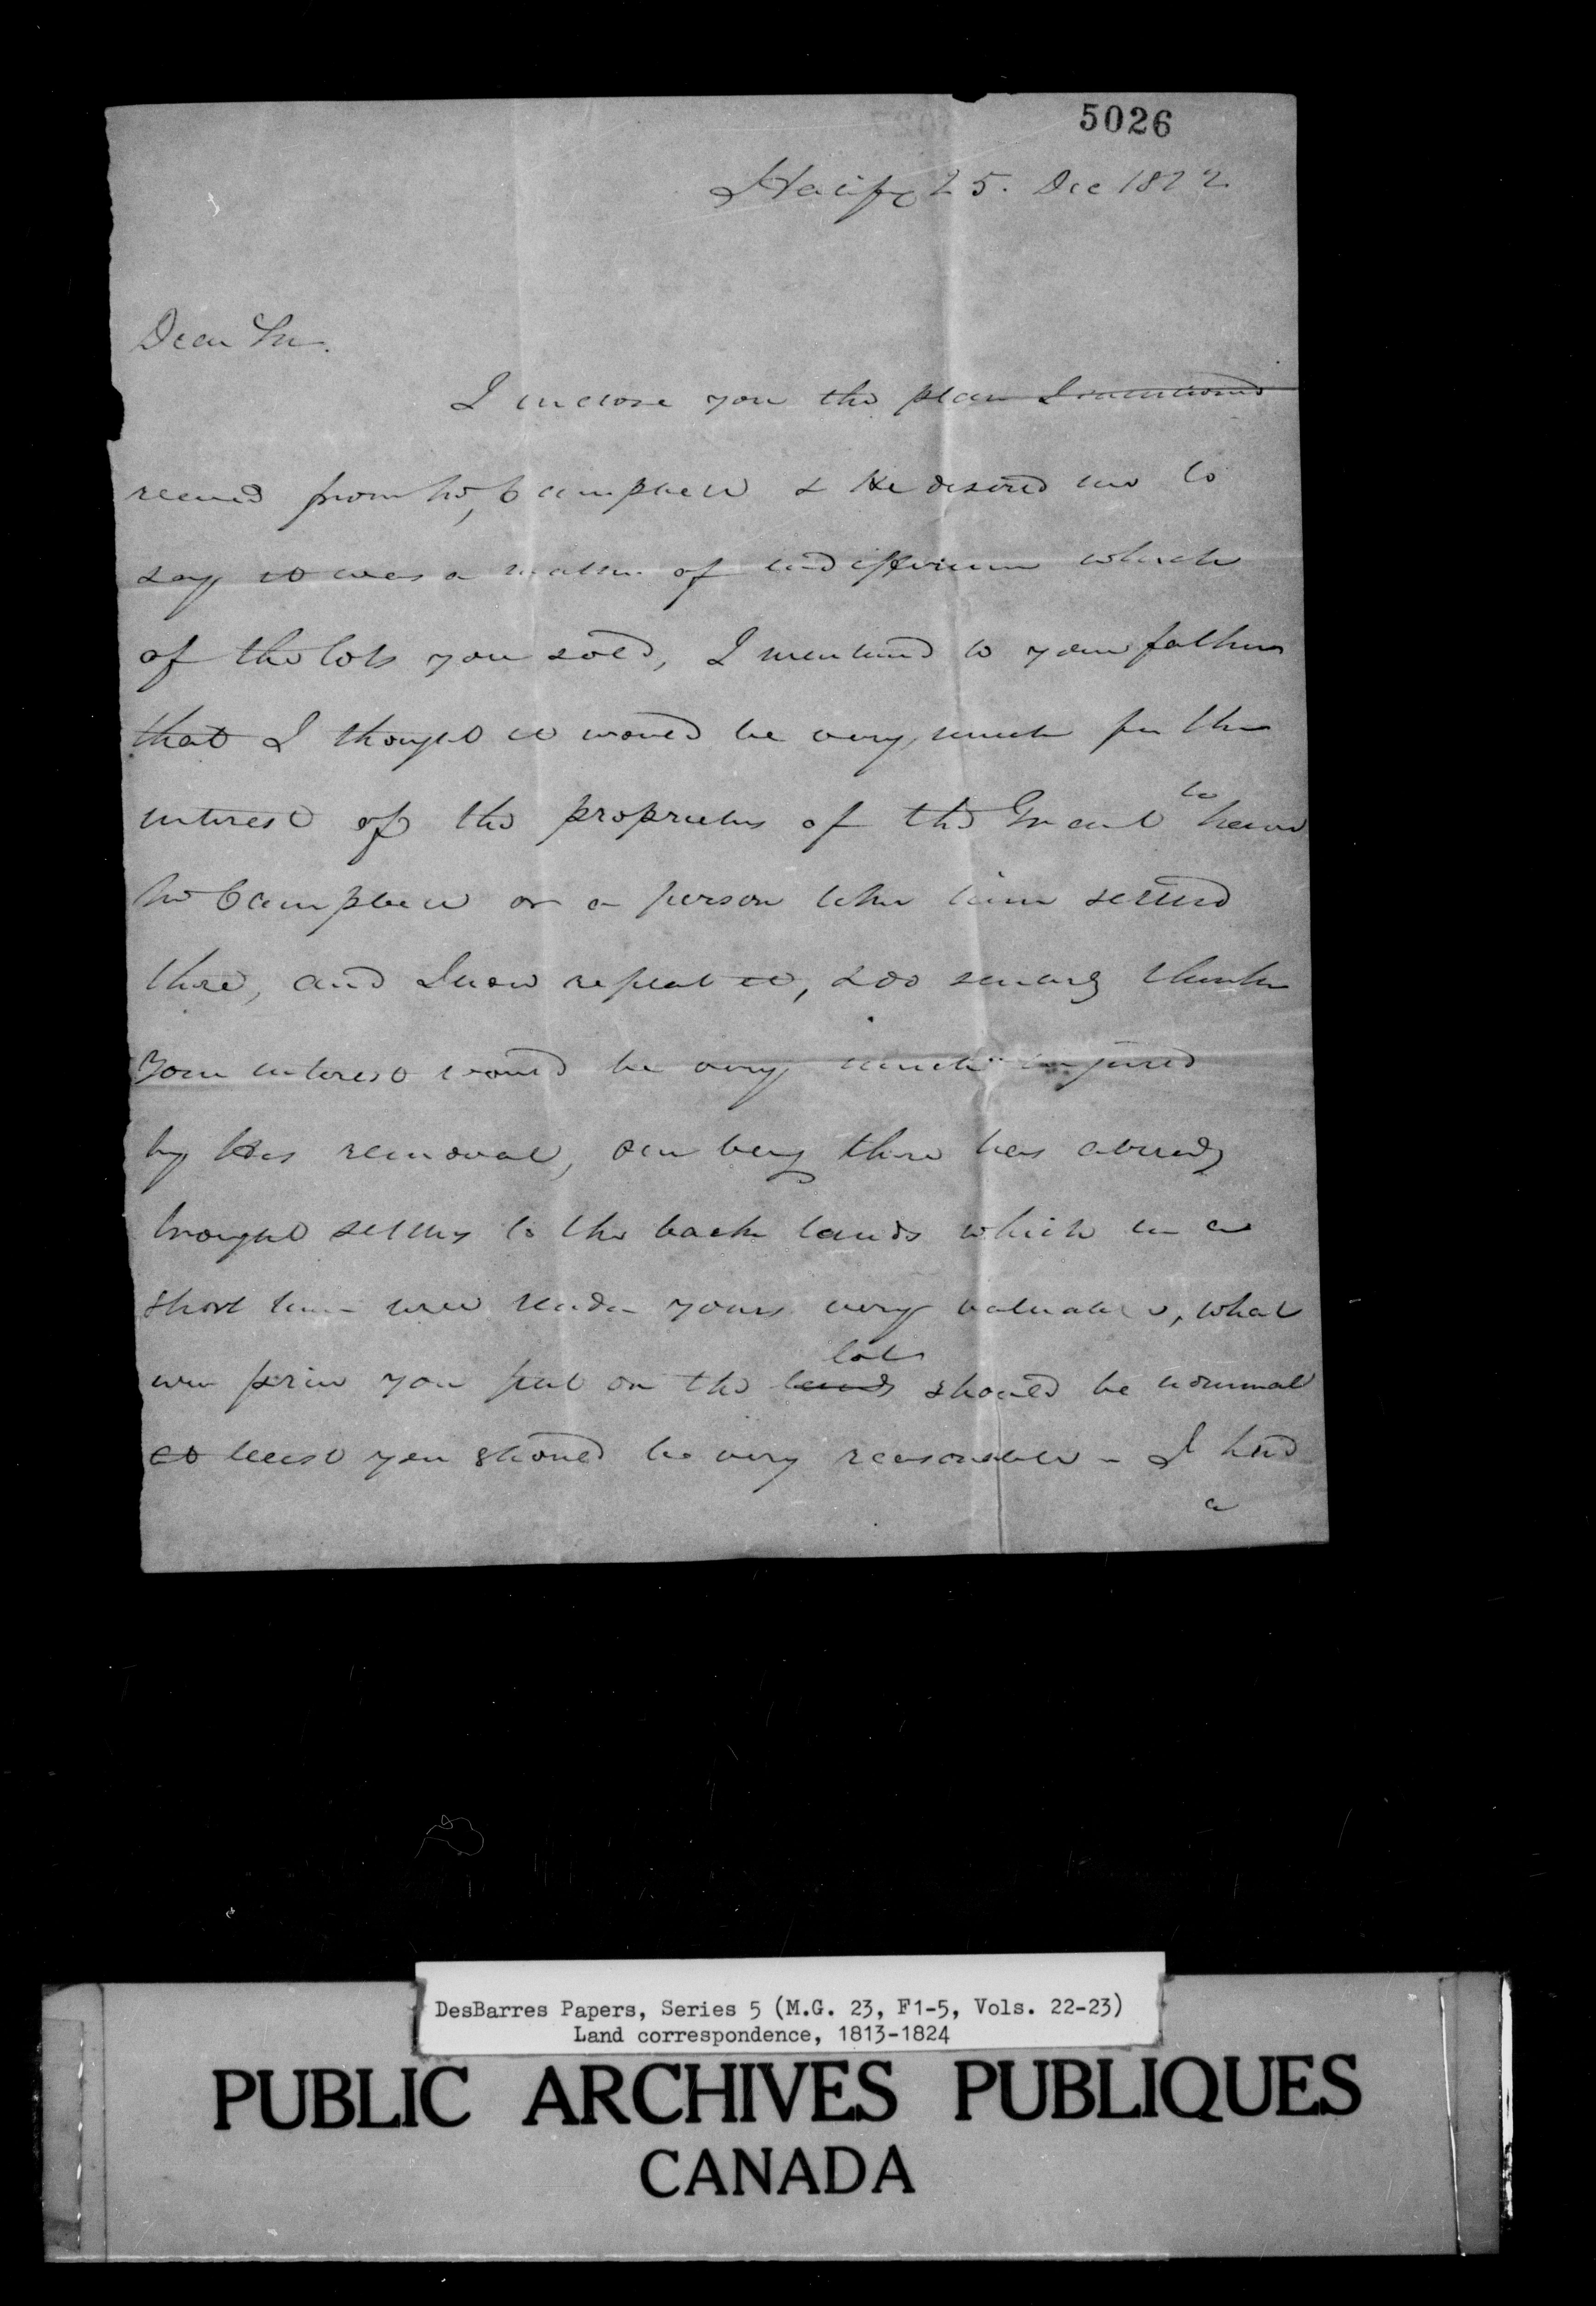 5026
Halifx 25. Dec 1822
Dear Sir.
I inclose you the plan I mentioned
received from Mr Campbell & He desired me to
say it was a matter of indifference which
of the lots you sold, I mentioned to your father
that I thought it would be very much for the
interest of the proprietors of the Grant to have
Mr Campbell or a person like him settled
there, and I now repeat it, & do sincerely think
your interest would be very much injured
by His removal, his being there has already
brought settlers to the back lands which in a
short time will render yours very valuable, what
ever price you put on the lands lots should be nominal
at least you should be very reasonable - I had
a
DesBarres Papers, Series 5 (M.G. 23, F1-5, Vols. 22-23)
Land correspondence, 1813-1824
PUBLIC ARCHIVES PUBLIQUES
CANADA